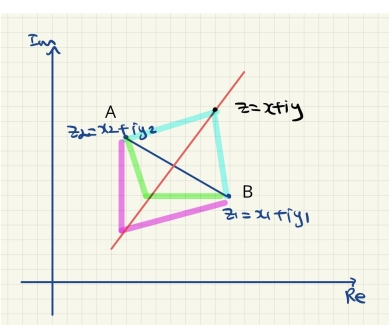 Im
A
z₂=x₂+iy₂
z=x+iy
B
z₁=x₁+iy₁
Re